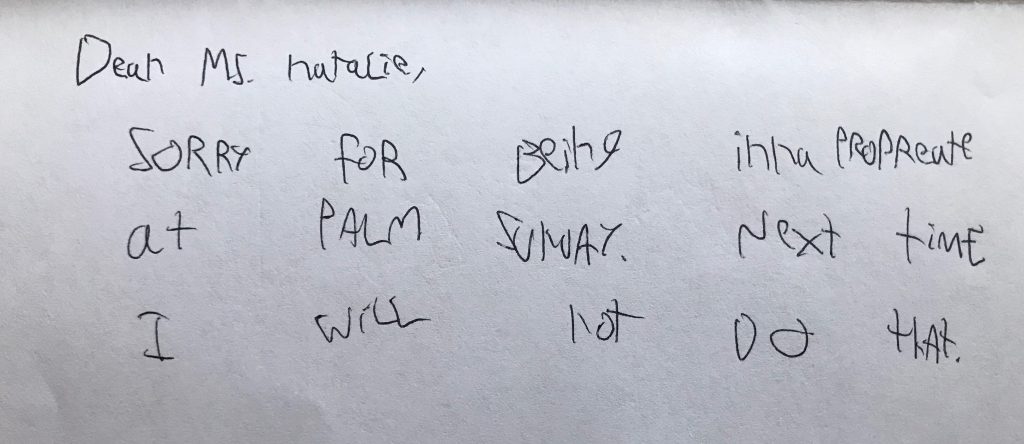 Dear Ms. natalie,
SORRY FOR Being inna PROPReate
at PALM SUNDAY. Next time
I will not DO that.